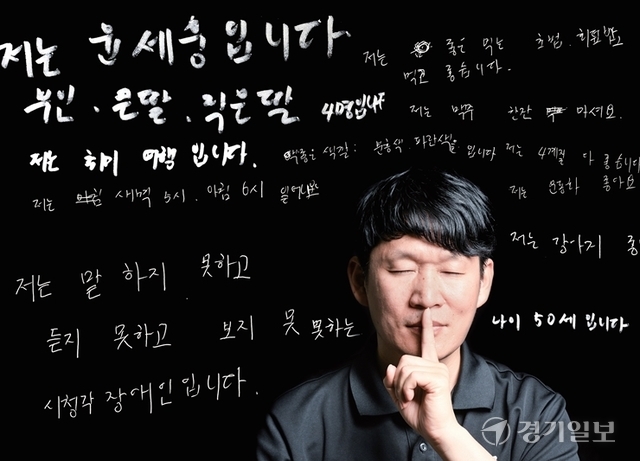 저는 윤세웅입니다
부인. 큰딸. 작은딸 4명입니다
저는 취미 여행 입니다.
좋은 색깔: 분홍색. 파란색 입니다
저는 새벽 5시. 아침 6시 일어나요
저는 좋은 먹는 초밥. 회
먹고 좋습니다.
저는 맥주 한잔 마셔요.
저는 4계절 다 좋습니다
저는 운동화 좋아요
저는 강아지
저는 말 하지 못하고
듣지 못하고 보지 못 못하는
시청각 장애인입니다.
나이 50세 입니다
경기일보